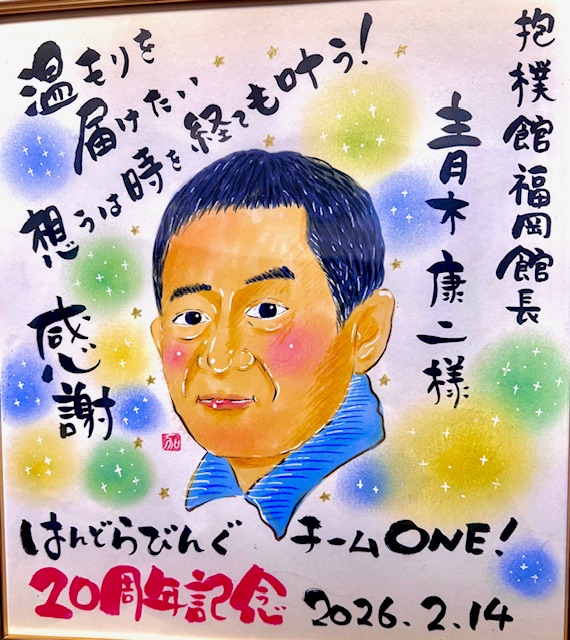 抱樸館福岡館長
青木康二様
温もりを
届けたい
想うは時を経ても叶う!
感謝
はんどらびんぐ チームONE!
20周年記念 2026.2.14